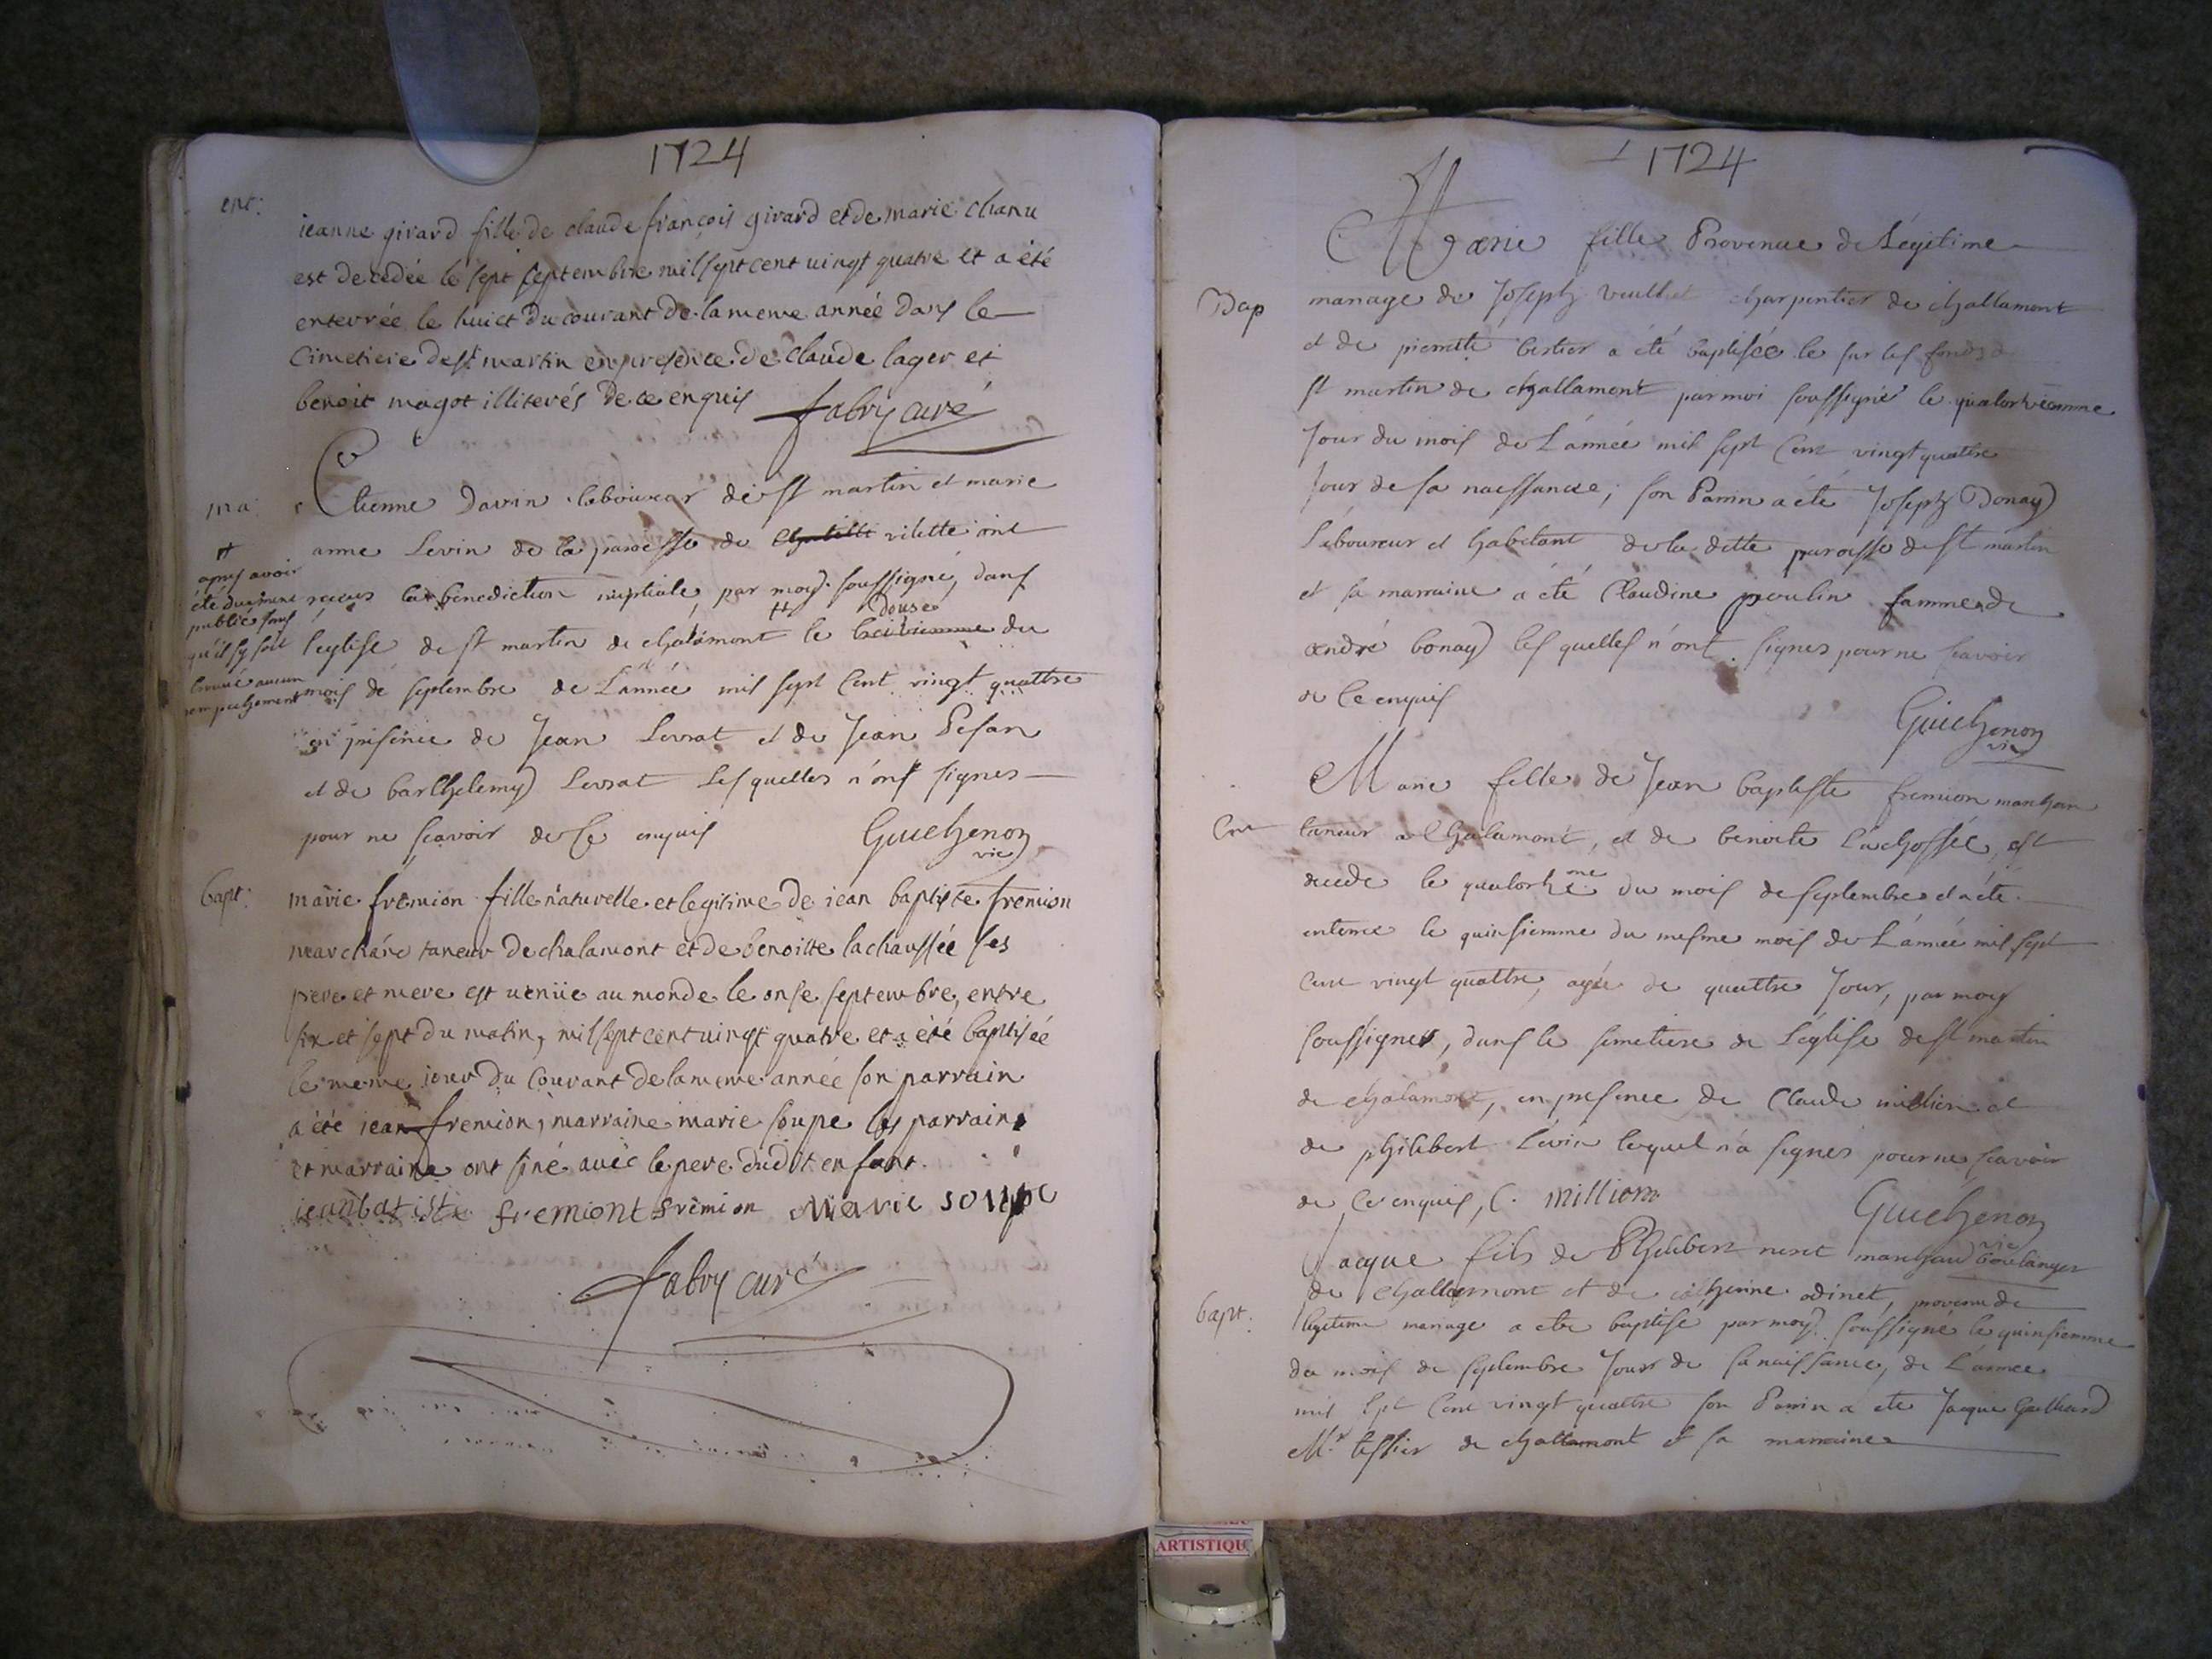 1724
ent:
jeanne girard fille de claude françois girard et de marie chanu
est decedée le sept septembre mil sept cent uingt quatre et a été
enterrée le huict du courant de la meme année dans le
cimetiere de st martin en presence de claude lager et
benoit magot illiterés de ce enquis fabry curé
ma:
Etienne Davin laboureur de st martin et marie
anne Levin de la paroesse de vilette ont
receus la benediction nuptiale, par moy soussigné, dans
++
apres avoir
été duement
publié sans
qu'il sy soit
trouvé aucun
empechement
++ douse
l'eglise de st martin de chalamont le du
mois de septembre de L'année mil sept Cent vingt quattre
en présence de Jean Levrat et de Jean Pesan
et de barthelemy Levrat Lesquelles n'ont signes
pour ne scavoir de Ce enquis Guichenon
vic
bapt:
marie fremion fille naturelle et legitime de jean baptiste fremion
marchand taneur de chalamont et de benoitte lachaussée ses
pere et mere est uenüe au monde le onse septembre, entre
six et sept du matin, mil sept cent uingt quatre et a été baptisée
le meme jour du courant de la meme année son parrain
a été jean fremion, marraine marie soupe les parrain
et marraine ont siné auec le pere dudit enfant.
jeanbatiste fremiont fremion marie soupe
fabry curé
1724
Marie fille Provenue de Légitime
Bap
mariage de Joseph charpentier de challamont
et de pierrette bertier a été baptisée le sur les fonds de
st martin de challamont par moi soussigné le quatorziemme
Jour du mois de L'année mil sept Cent vingt quattre
Jour de sa naessance; son Parrin a été Joseph Donay
Laboureur et habitant de la ditte paroisse de st martin
et sa marraine a été Claudine poulin famme de
andré bonay lesquelles n'ont signes pour ne scavoir
de Ce enquis
Guichenon
vic
Marie fille de Jean baptiste fremion marchan
Ent
taneur a Chalamont, et de benoite Lachossée, est
decede le quatorzieme du mois de septembre et a été
enterree le quinsiemme du mesme mois de L'année mil sept
Cent vingt quattre, agée de quattre Jour, par moy
soussignes, dans le simetiere de Léglise de st martin
de chalamont, en presence de Claude million et
de philibert Levin lequel n'a signes pour ne scavoir
de Ce enquis, C. million Guichenon
vic
Jacque fils de Philibert marchand boulanger
bapt:
de challamont et de catherine odinet, provenu de
legitime mariage a ete baptisé par moy soussigné le quinsiemme
du mois de septembre Jour de sa naissance, de L'année
mil sept Cent vingt quattre son Parrin a ete Jacque Galliard
Mr tessier de challamont et sa marraine
ARTISTIQU